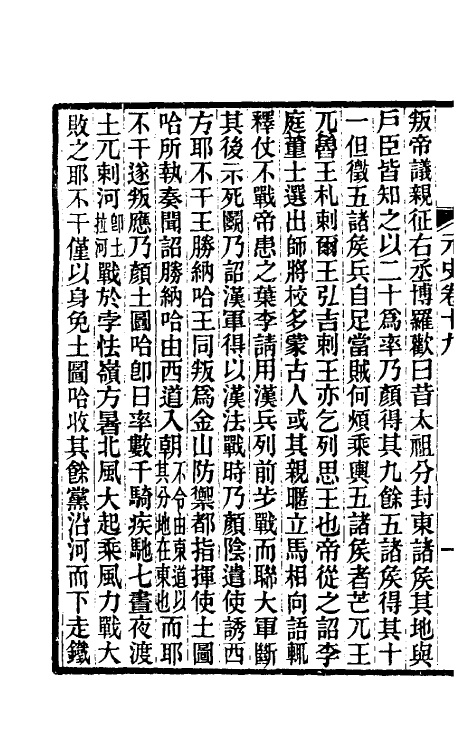 元史卷十九
一
叛帝議親征右丞博羅歡曰昔太祖分封東諸侯其地與
戶臣皆知之以二十爲率乃顏得其九餘五諸侯得其十
一但徵五諸侯兵自足當賊何煩乘輿五諸侯者芒兀王
兀魯王札剌爾王弘吉剌王亦乞列思王也帝從之詔李
庭董士選出師將校多蒙古人或其親暱立馬相向語輒
釋仗不戰帝患之葉李請用漢兵列前步戰而聯大軍斷
其後示死鬭乃詔漢軍得以漢法戰時乃顏陰遣使誘西
方耶不干王勝納哈王同叛爲金山防禦都指揮使土圖
哈所執奏聞詔勝納哈由西道入朝不令由東道以其分地在東也而耶
不干遂叛應乃顏土圖哈卽日率數千騎疾馳七晝夜渡
土兀剌河卽土拉河戰於孛怯嶺方暑北風大起乘風力戰大
敗之耶不干僅以身免土圖哈收其餘黨沿河而下走鐵